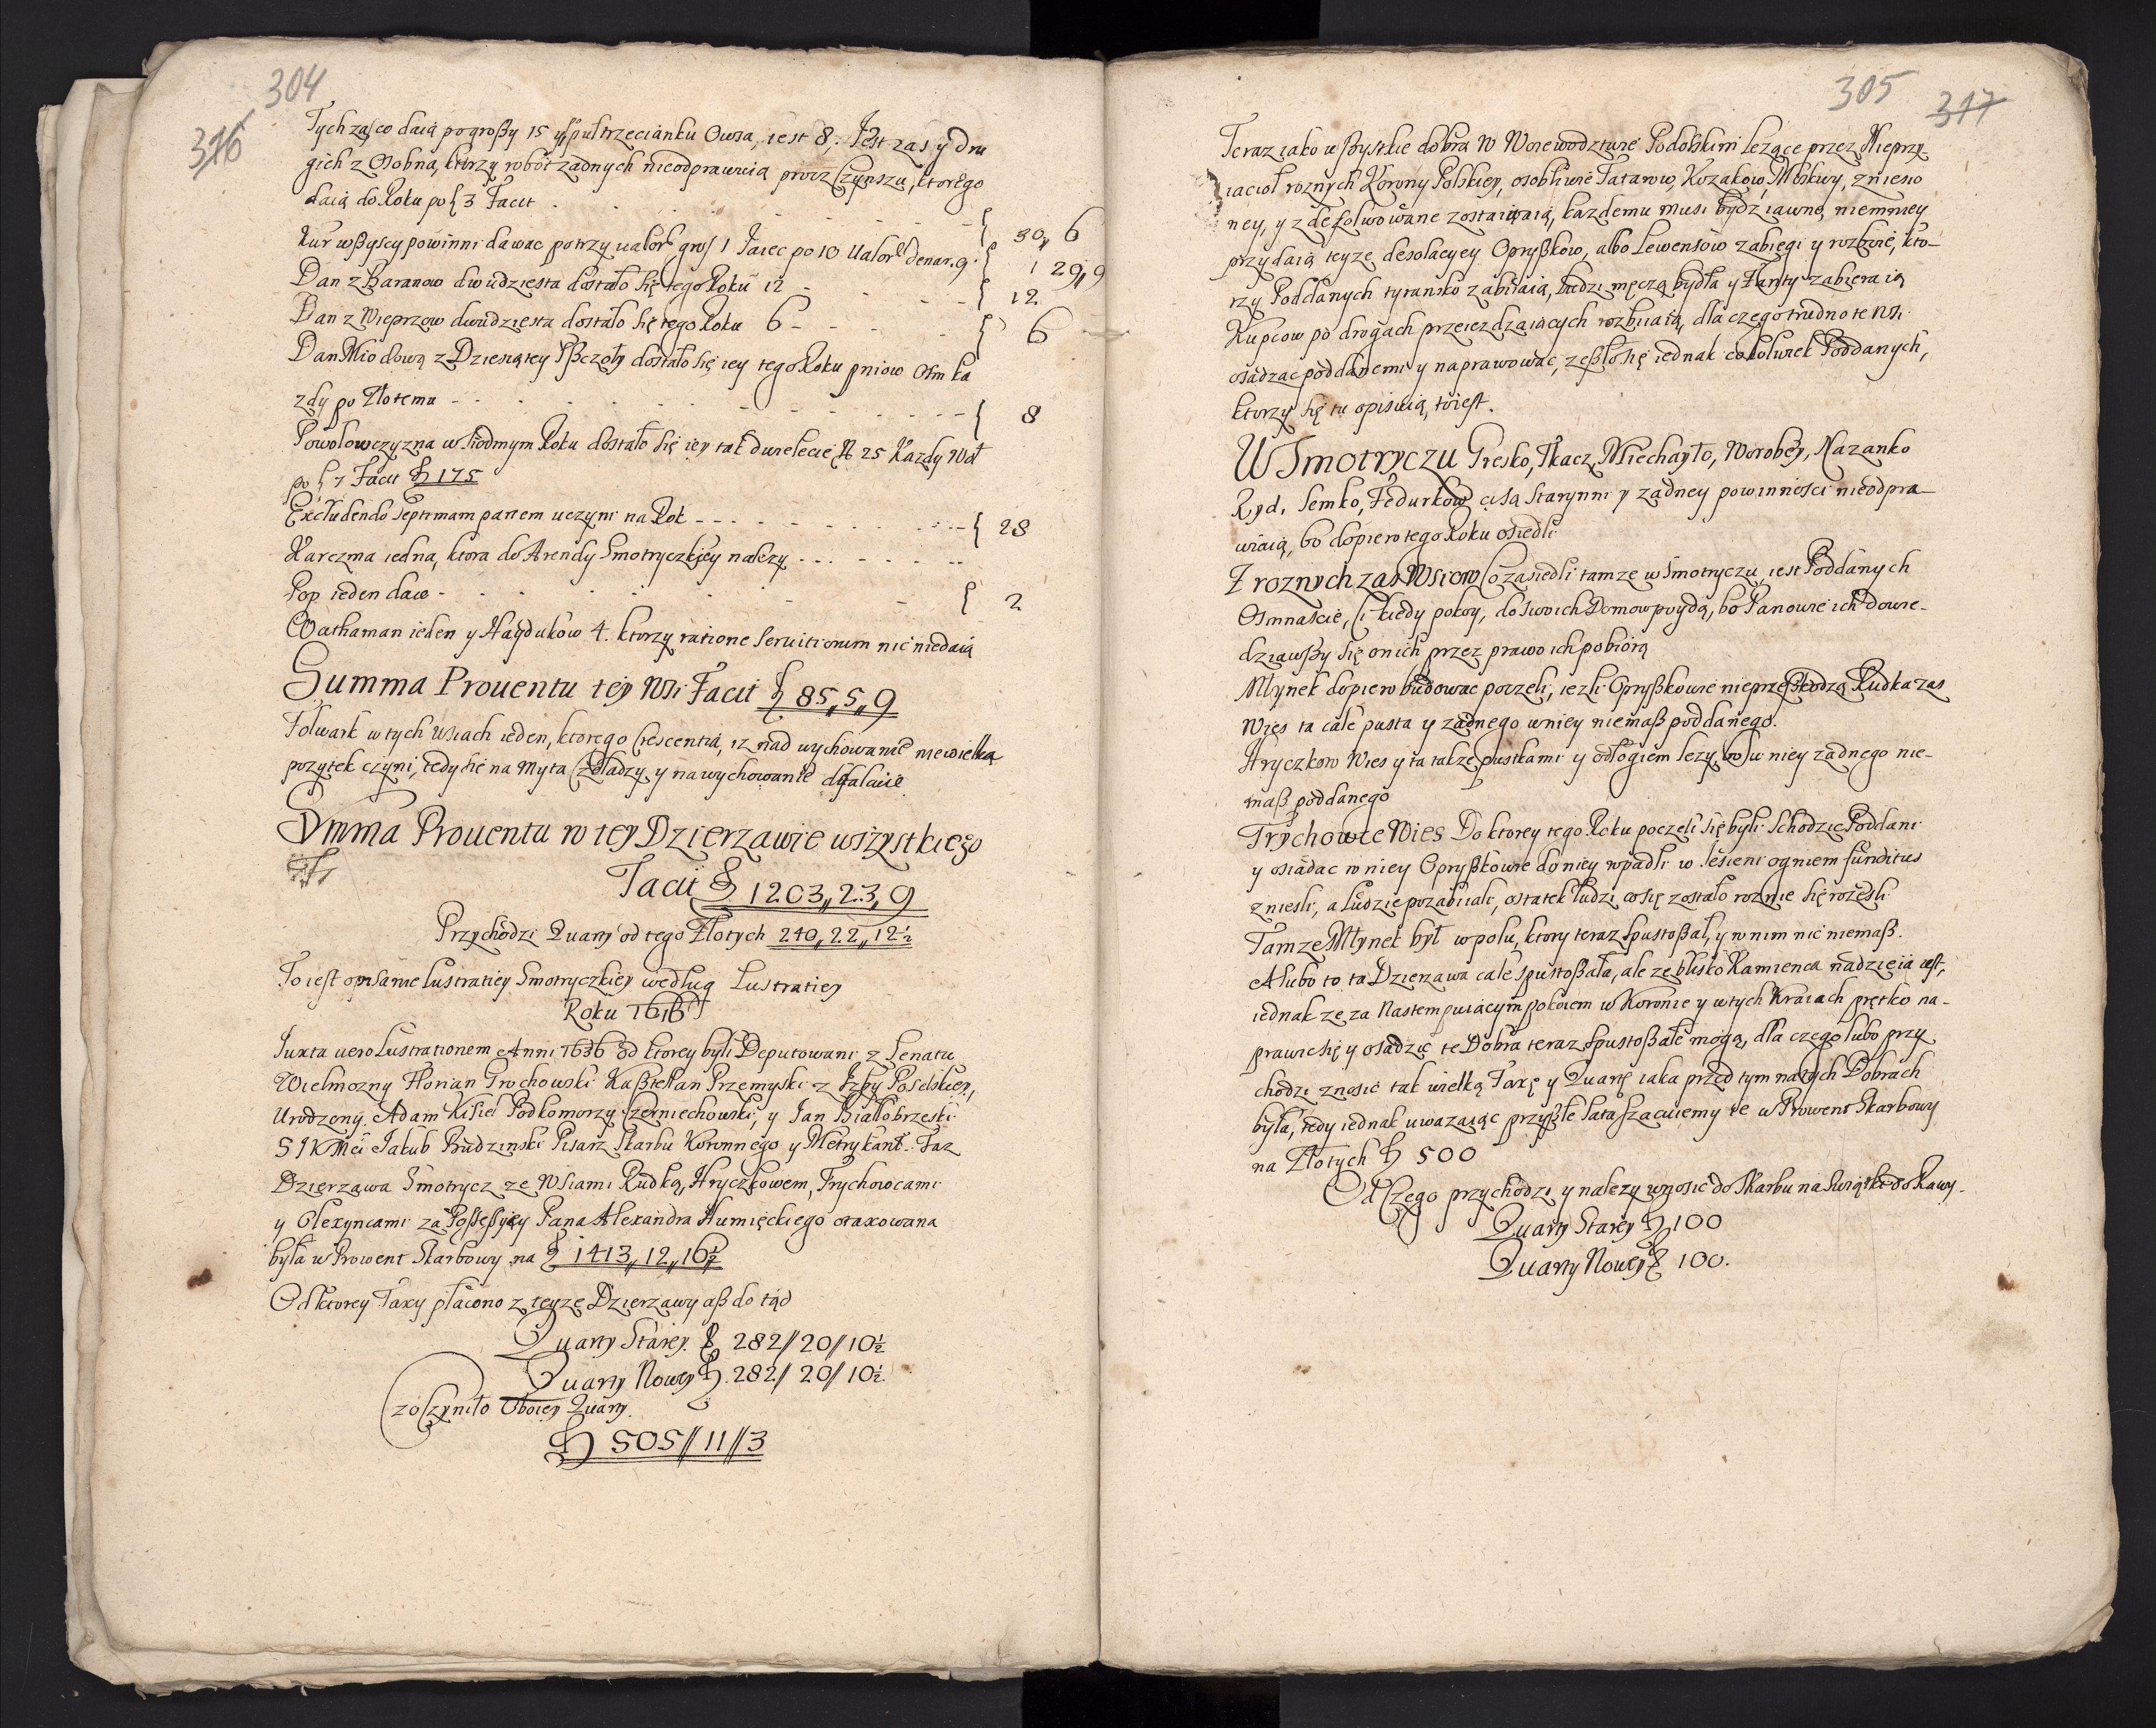 304
316
Tych zas co daią po groszy 15 y puł trzecianku Owsa, iest 8, Jest zas y dru
gich z Osobna, ktorzy robot zadnych nieodprawuią procz Czynszu, ktorego
daią do Roku po ƒ 3 Facit
30, 6
Kur wszyscy powinni dawac po trzy ualore gros 1 Jaiec po 10 Ualore denar. 9.
1 29, 9
Dan z Baranow dwudziesta dostało się tego Roku 12
12
Dan z Wieprzow dwudziesta dostało się tego Roku 6
6
Dan Miodowa z Dziesiątey Pszczoły dostało się iey tego Roku pniow osm ka
zdy po Złotemu
8
Powołowczyzna w siodmym Roku dostało się iey tak dwielecie N 25 Kazdy Woł
po ƒ 7 Facit ƒ 175
Excludendo Septimam partem uczyni na Rok
28
Karczma iedna, ktora do Arendy Smotryczkiey nalezy
Pop ieden daie
2
Wathaman ieden y Haydukow 4. ktorzy ratione Seruitiorum nic niedaią
Summa Prouentu tey Wsi Facit ƒ 85,, 5,, 9
Folwark w tych Wsiach ieden, ktorego Crescentia, iz nad wychowanie niewielką
pozytek czyni, tedy sie na Myta Czeladzy y na wychowanie defalcuie
Summa Prouentu w tey Dzierzawie wszystkiego
Facit ƒ 1203,, 23,, 9
Przychodzi Quarty od tego Złotych 240,, 22,, 12½
To iest opisanie Lustratiey Smotryczkiey według Lustratiey
Roku 1616
Iuxta uero Lustrationem Anni 1636 od ktorey byli Deputowani z Senatu
Wielmozny Florian Grochowski Kasztellan Przemyski z Izby Poselskiey,
Urodzony Adam Kisiel Podkomorzy Czerniechowski, y Jan Białobrzeski
S J K Mci Jakub Budzinski Pisarz Skarbu Koronnego y Metrykant. Taz
Dzierzawa Smotrycz ze Wsiami Rudką, Hryczkowem, Trychowcami
y Olexyncami za Possessyiey Pana Alexandra Humięckiego otaxowana
była w Prowent Skarbowy na ƒ 1413,, 12,, 16½
Od ktorey Taxy płacono z teyze Dzierzawy asz do tąd
Quarty Starey. ƒ 282// 20// 10½
Quarty Nowey ƒ. 282// 20// 10½.
zo Czyniło Oboiey Quarty.
ƒ 505// 11// 3
305
317
Teraz iako wszystkie dobra w Woiewodztwie Podolskim lezące przez Nieprzy-
iacioł roznych Korony Polskiey, osobliwie Tatarow, Kozakow, Moskwy, zniesio
ney, y zdezolwowane zostawaią, kazdemu musi bydz iawno, niemniey
przydaią teyze desolacyey Opryszkow, albo Lewensow zabiegi y rozboie, kto-
rzy Poddanych tyransko zabiiaią, ludzi męczą bydła y Fanty zabieraią
Kupcow po drogach przeiezdzaiących rozbiiaią, dla czego trudno te Wsi
osadzac poddanemi y naprawowac, zeszło się iednak cokolwiek Poddanych,
ktorzy się tu opisuią, to iest.
W Smotryczu Gresko, Tkacz, Miechayło, Worobey, Nazanko
Zyd, Semko, Fedurkow, ci są Starynni y zadney powinnosci nieodpra-
wuią, bo dopiero tego Roku osiedli
Z roznych zas Wsiow Co zasiedli tamze w Smotryczu, iest Poddanych
Osmnascie, Ci kiedy pokoy, do swoich Domow poydą, bo Panowie ich dowie-
dziawszy się o nich przez prawo ich pobiorą
Młynek dopiero budowac poczeli, iezli Opryszkowie nieprzeszkodzą Rudka zas
Wies ta cale pusta y zadnego w niey niemasz poddanego.
Hryczkow Wies y ta takze pustkami y odłogiem lezy, bo w niey zadnego nie-
masz poddanego
Trychowce Wies Do ktorey tego Roku poczeli się byli Schodzic Poddani
y osiadac w niey Opryszkowie do niey wpadli w Jesieni ogniem funditus
zniesli, a ludzie pozabiiali, ostatek ludzi co się zostało roznie się rozesli
Tamze Młynek był w polu, ktory teraz spustoszał, y w nim nic niemasz.
A lubo to ta Dzierzawa cale spustoszała, ale ze blisko Kamienca nadzieia iest,
iednak ze za Nastempuiącym pokoiem w Koronie y w tych Kraiach prętko na-
prawic się y osadzic te Dobra teraz spustoszałe mogą, dla czego lubo przy
chodzi znosic tak wielką Taxę y Quartę iaka przed tym na tych Dobrach
była, tedy iednak uwazaiąc przyszłe lata szacuiemy ie w Prowent Skarbowy
na Złotych ƒ 500
Od Czego przychodzi y nalezy wnosic do Skarbu na Swiątki do Rawy.
Quarty Starey ƒ 100
Quarty Nowey ƒ 100.